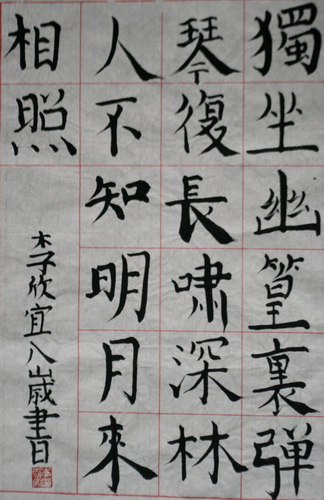 獨坐幽篁裏彈
琴復長嘯深林
人不知明月來
相照
李欣宜八歲書